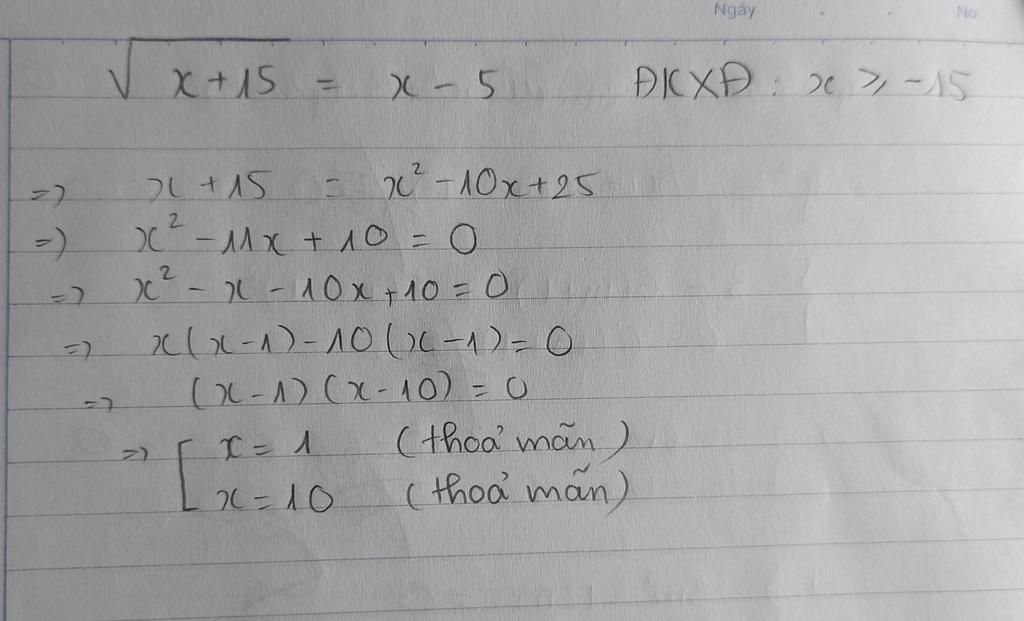 Ngày No.
√(x+15) = x - 5 ĐKXĐ : x ≥ -15
=> x + 15 = x² - 10x + 25
=> x² - 11x + 10 = 0
=> x² - x - 10x + 10 = 0
=> x(x - 1) - 10(x - 1) = 0
=> (x - 1)(x - 10) = 0
=> [ x = 1 (thoả mãn)
x = 10 (thoả mãn)